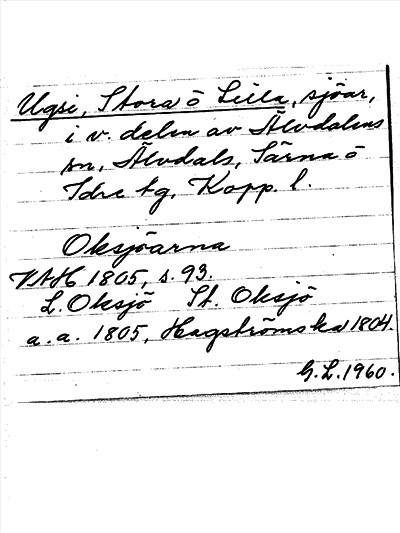 Ugsi, Stora o Lilla, sjöar,
i v. delen av Älvdalens
sn, Älvdals, Särna o
Idre tg, Kopp. l.
Oksjöarna
VAH 1805, s. 93.
L. Oksjö St. Oksjö
a. a. 1805, Hagströmska 1804.
G. L. 1960.